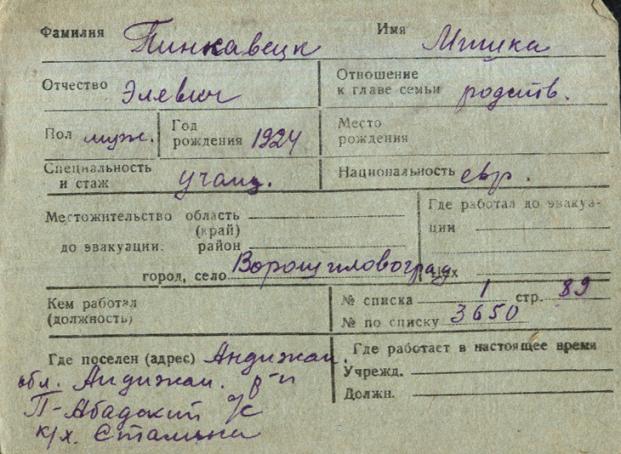 Фамилия Пинкавецк Имя Мишка
Отчество Элевич Отношение к главе семьи родств.
Пол муж. Год рождения 1924 Место рождения
Специальность и стаж учащ. Национальность евр.
Местожительство область Где работал до эвакуа-
(край) ции
до эвакуации: район
город, село Ворошиловоград
Кем работал № списка 1 стр. 89
(должность) № по списку 3650
Где поселен (адрес) Андижан. Где работает в настоящее время
обл. Андижан. р-н Учрежд.
П-Абадский с/с Должн.
к/х. Сталина